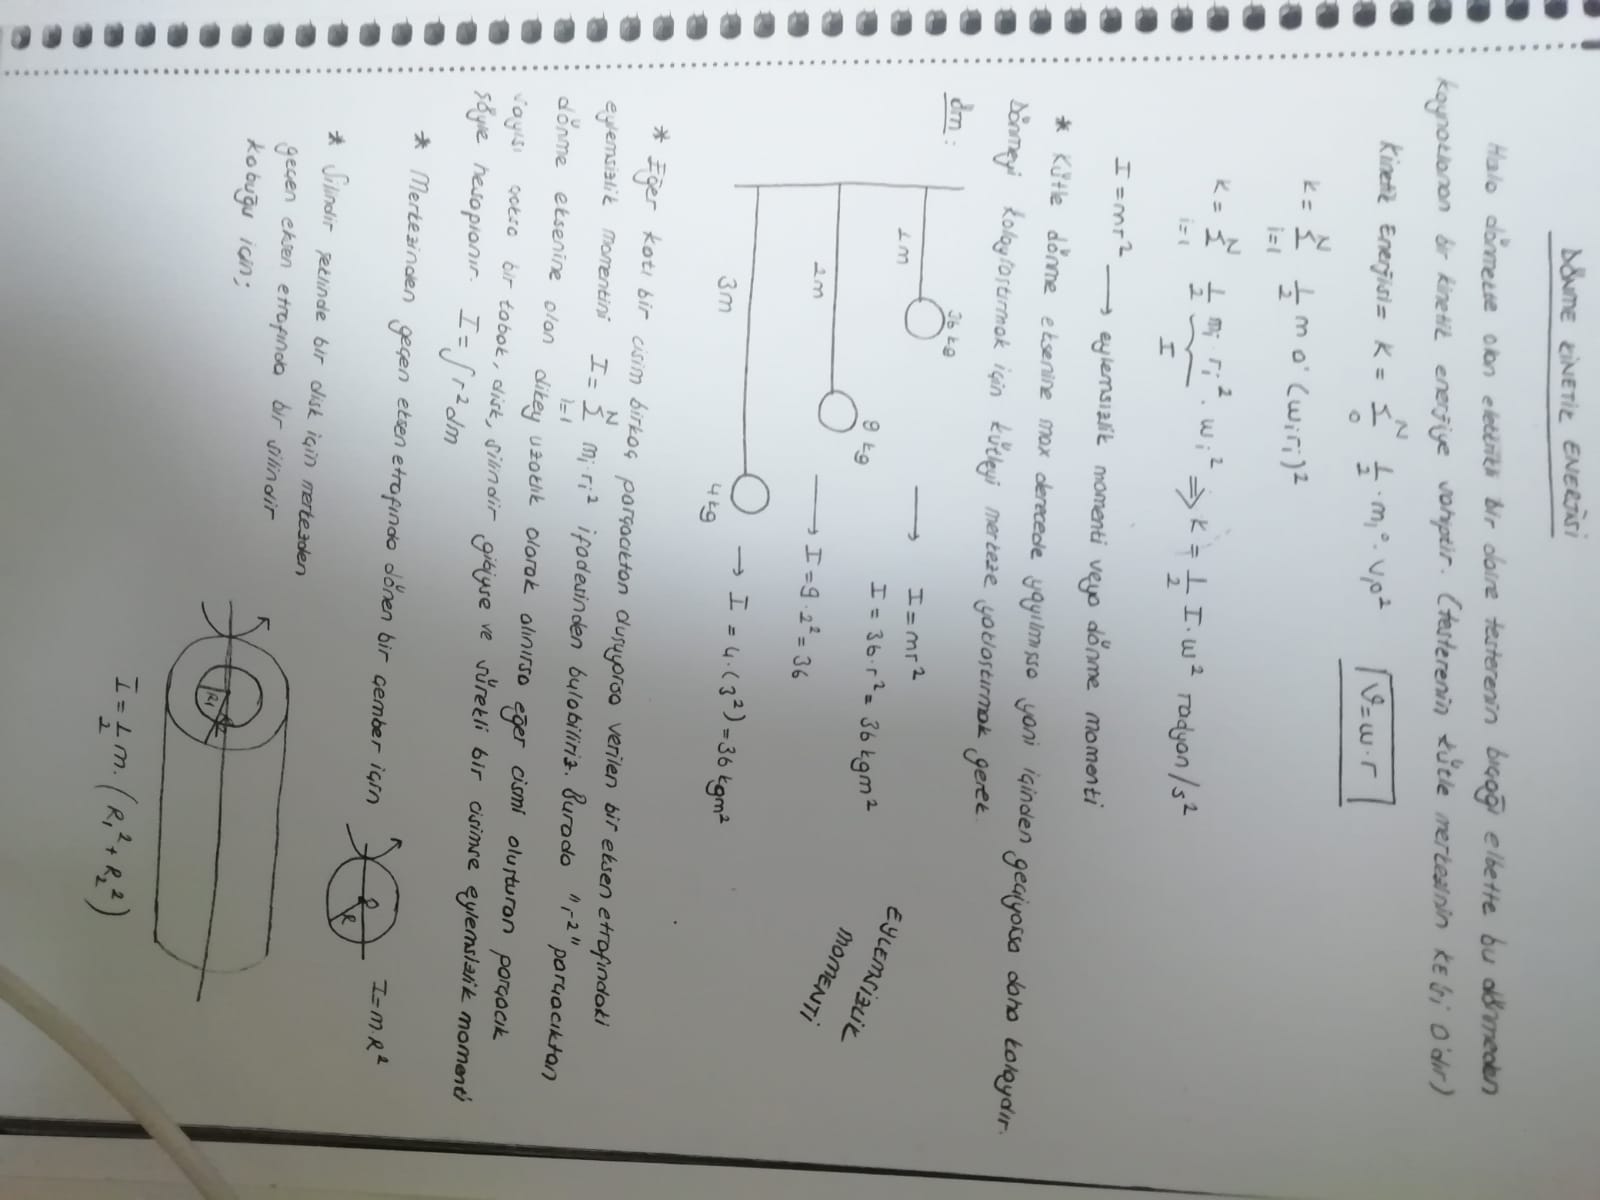 DÖNME KİNETİK ENERJİSİ
Hızla dönmekte olan elektrikli bir daire testerenin bıçağı elbette bu dönmeden
kaynaklanan bir kinetik enerjiye sahiptir. (testerenin kütle merkezinin KE'si 0'dır)
Kinetik Enerjisi= K = Σ 0 N 1/2 · mi · vi² v=w·r
K = Σ i=1 N 1/2 m · (wiri)²
K = Σ i=1 N 1/2 mi ri² · wi² ⇒ K = 1/2 I·w² radyan/s²
I
I =mr² → eylemsizlik momenti veya dönme momenti
* Kütle dönme eksenine max derecede yayılmışsa yani içinden geçiyorsa daha kolaydır.
Dönmeyi kolaylaştırmak için kütleyi merkeze yaklaştırmak gerek.
örn:
36 kg
1m
→ I=mr²
I = 36·r² = 36 kgm²
EYLEMSİZLİK
MOMENTİ
9 kg
2m
→ I=9·2²=36
3m
4kg
→ I = 4·(3²)=36 kgm²
* Eğer katı bir cisim birkaç parçacıktan oluşuyorsa verilen bir eksen etrafındaki
eylemsizlik momentini I= Σ i=1 N mi·ri² ifadesinden bulabiliriz. Burada "r²" parçacıktan
dönme eksenine olan dikey uzaklık olarak alınırsa eğer cismi oluşturan parçacık
sayısı çoksa bir tabak, disk, silindir gibiyse ve sürekli bir cisimse eylemsizlik momenti
şöyle hesaplanır. I=∫r²dm
* Merkezinden geçen eksen etrafında dönen bir çember için
R
I=m.R²
* Silindir şeklinde bir disk için merkezden
geçen eksen etrafında bir silindir
kabuğu için;
R1 R2
I=1/2 m. (R1²+R2²)